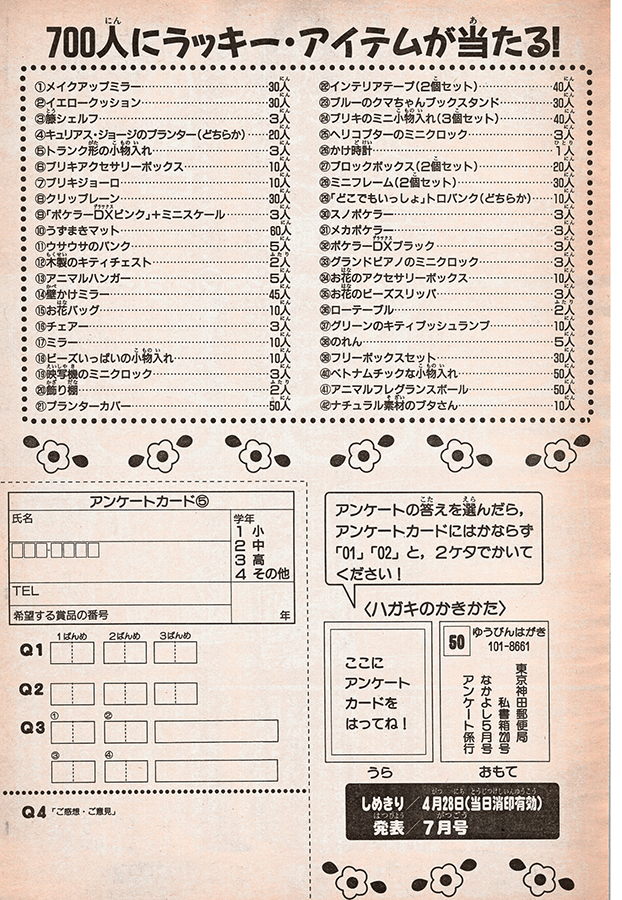 700人にラッキー・アイテムが当たる!
①メイクアップミラー……30人
②イエロークッション……30人
③籐シェルフ……3人
④キュリアス・ジョージのプランター(どちらか)……20人
⑤トランク形の小物入れ……3人
⑥ブリキアクセサリーボックス……10人
⑦ブリキジョーロ……10人
⑧クリップレーン……30人
⑨「ポケラーDXピンク」+ミニスケール……3人
⑩うずまきマット……60人
⑪ウサウサのバンク……5人
⑫木製のキティチェスト……2人
⑬アニマルハンガー……5人
⑭壁かけミラー……45人
⑮お花バッグ……10人
⑯チェアー……3人
⑰ミラー……10人
⑱ビーズいっぱいの小物入れ……10人
⑲映写機のミニクロック……3人
⑳飾り棚……2人
㉑プランターカバー……50人
㉒インテリアテープ(2個セット)……40人
㉓ブルーのクマちゃんブックスタンド……30人
㉔ブリキのミニ小物入れ(3個セット)……40人
㉕ヘリコプターのミニクロック……3人
㉖かけ時計……1人
㉗ブロックボックス(2個セット)……20人
㉘ミニフレーム(2個セット)……30人
㉙「どこでもいっしょ」トロバンク(どちらか)……10人
㉚スノポケラー……3人
㉛メカポケラー……3人
㉜ポケラーDXブラック……3人
㉝グランドピアノのミニクロック……3人
㉞お花のアクセサリーボックス……10人
㉟お花のビーズスリッパ……3人
㊱ローテーブル……2人
㊲グリーンのキティプッシュランプ……10人
㊳のれん……5人
㊴フリーボックスセット……30人
㊵ベトナムチックな小物入れ……50人
㊶アニマルフレグランスボール……50人
㊷ナチュラル素材のブタさん……10人
アンケートカード⑤
氏名
学年
1 小
2 中
3 高
4 その他
年
TEL
希望する賞品の番号
1ばんめ 2ばんめ 3ばんめ
Q1
Q2
Q3 ① ②
③ ④
Q4「ご感想・ご意見」
アンケートの答えを選んだら,
アンケートカードにはかならず
「01」「02」と,2ケタでかいて
ください!
〈ハガキのかきかた〉
ここに
アンケート
カードを
はってね!
うら
50 ゆうびんはがき
101-8661
東京神田郵便局
私書箱220号
なかよし5月号
アンケート係行
おもて
しめきり/4月28日(当日消印有効)
発表/7月号